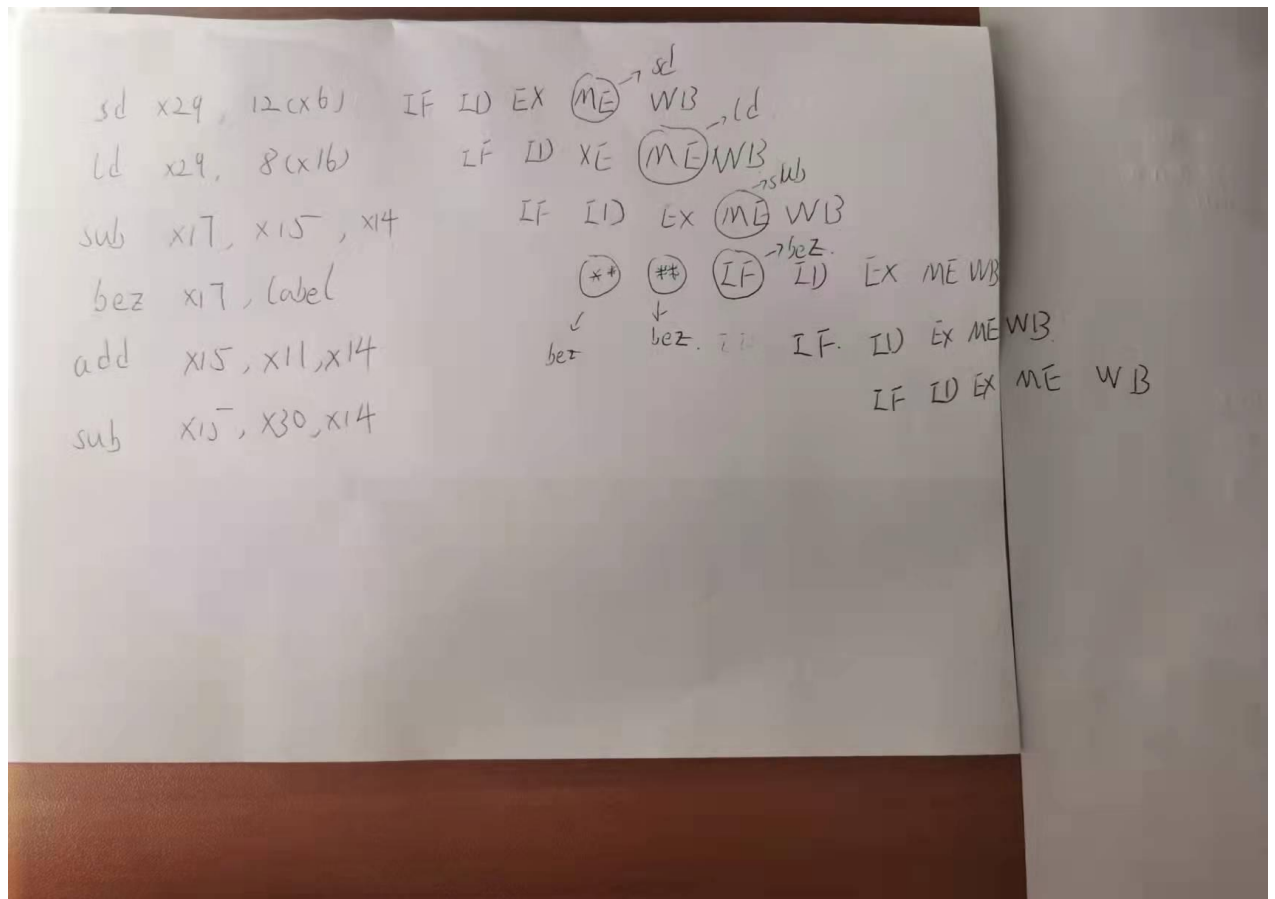 sd
sd x29, 12(x6) IF ID EX ME WB
ld
ld x29, 8(x16) IF ID XE ME WB
sub
sub x17, x15, x14 IF ID EX ME WB
bez.
bez x17, label ** ** IF ID EX ME WB
bez bez.
add x15, x11, x14 IF. ID EX ME WB.
sub x15, x30, x14 IF ID EX ME WB